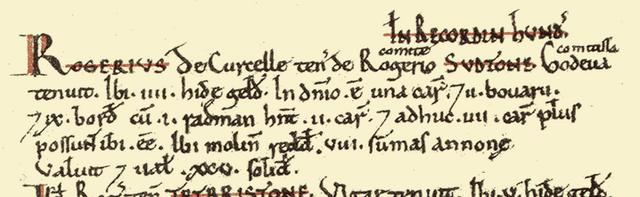 IN RECORDIN HUND'.
comite comitissa
ROGERIUS De Curcelle ten' de Rogerio SUDTONE Godeva
tenuit. Ibi. IIII. hidę geld'. In dn̄io. ē una car'. 7 II. bouarii.
7 IX. bord' cū. I. radman hn̄t. II. car'. 7 adhuc. VII. car' plus
possunt ibi. ēē. Ibi molin' redd'. VIII. sūmas annonę
Valuit 7 ual'. XXV. solid'.
ten' Vlgar tenuit. Ibi. V. hidę geld'.